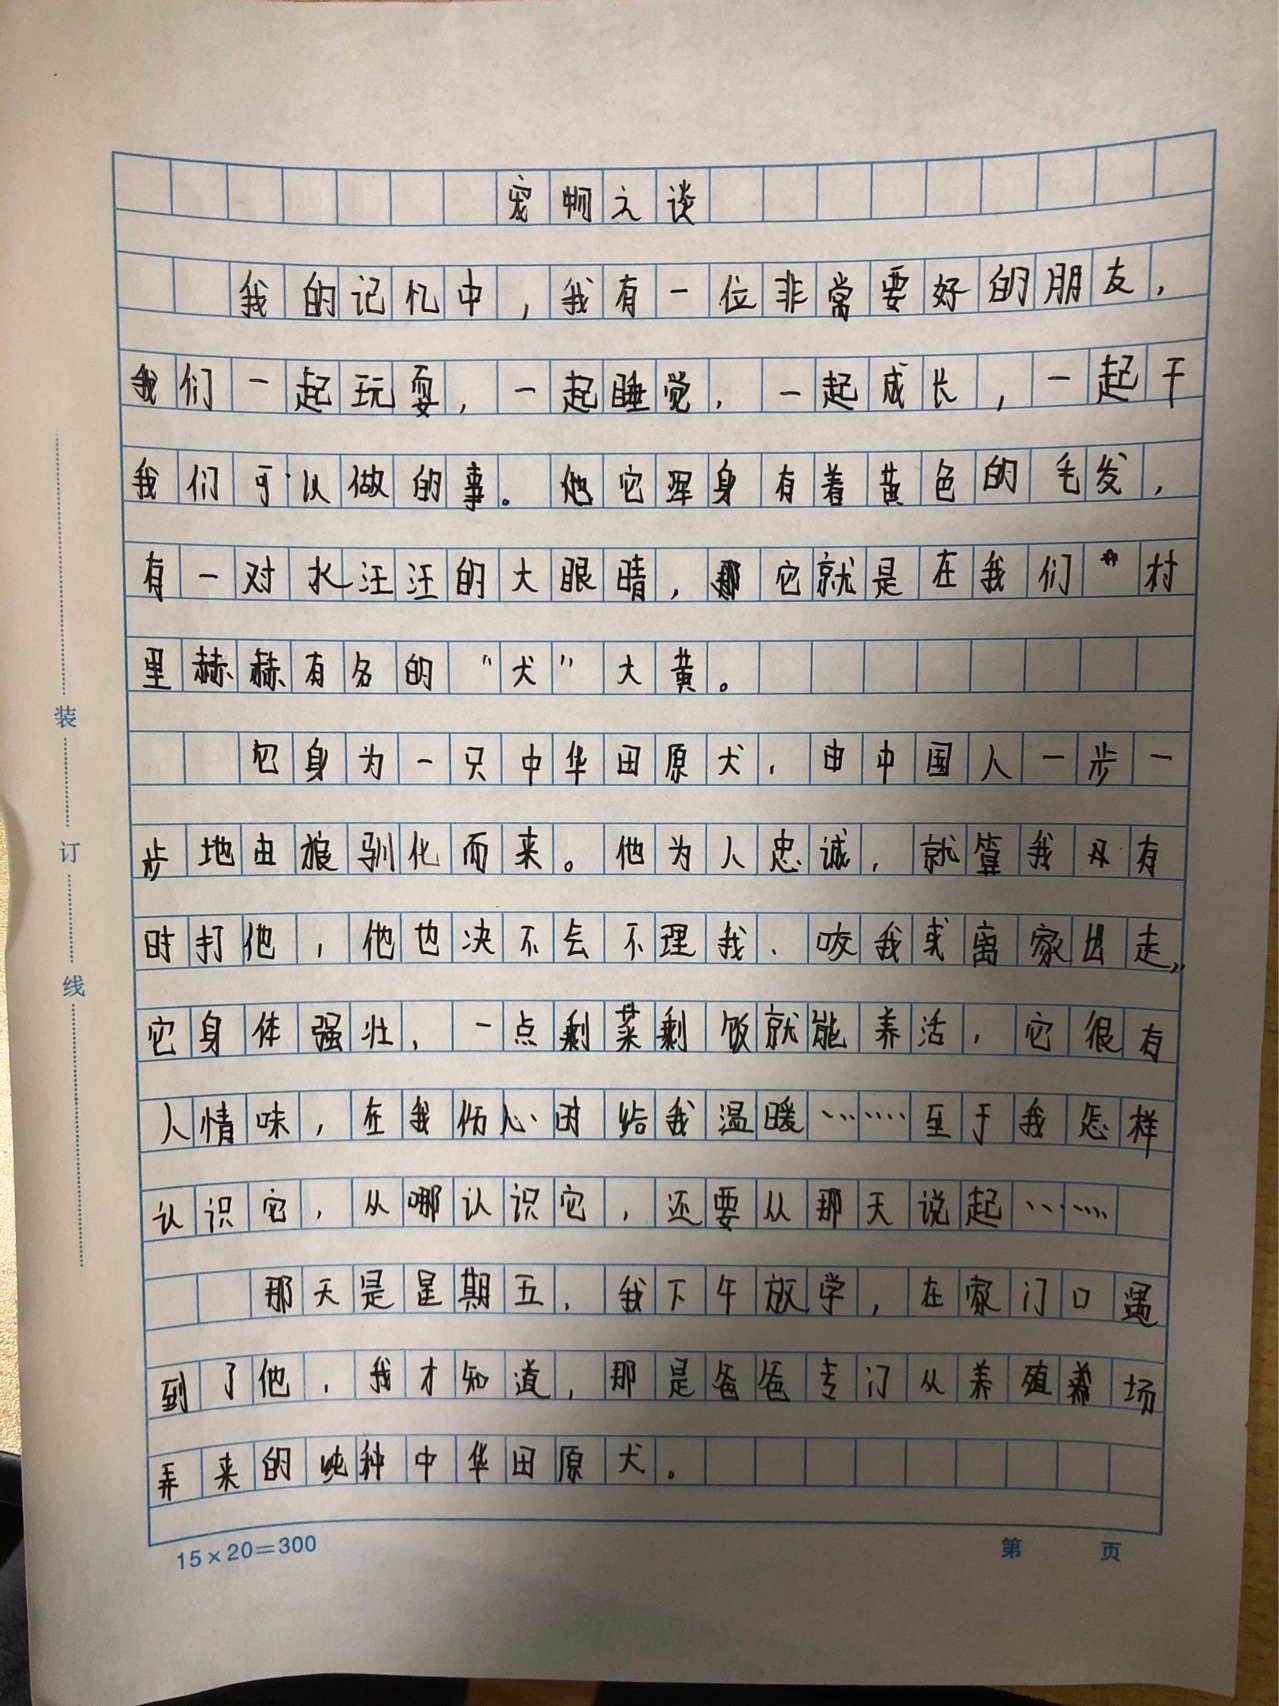 宠物之谈
我的记忆中，我有一位非常要好的朋友，
我们一起玩耍，一起睡觉，一起成长，一起干
我们可以做的事。它浑身有着黄色的毛发，
有一对水汪汪的大眼睛，它就是在我们村
里赫赫有名的“犬”大黄。
它身为一只中华田原犬，由中国人一步一
步地由狼驯化而来。他为人忠诚，就算我有
时打他，他也决不会不理我、咬我或离家出走。
它身体强壮，一点剩菜剩饭就能养活，它很有
人情味，在我伤心时给我温暖……至于我怎样
认识它，从哪认识它，还要从那天说起……
那天是星期五，我下午放学，在家门口遇
到了他，我才知道，那是爸爸专门从养殖场
弄来的纯种中华田原犬。
装
订
线
15×20=300
第 页